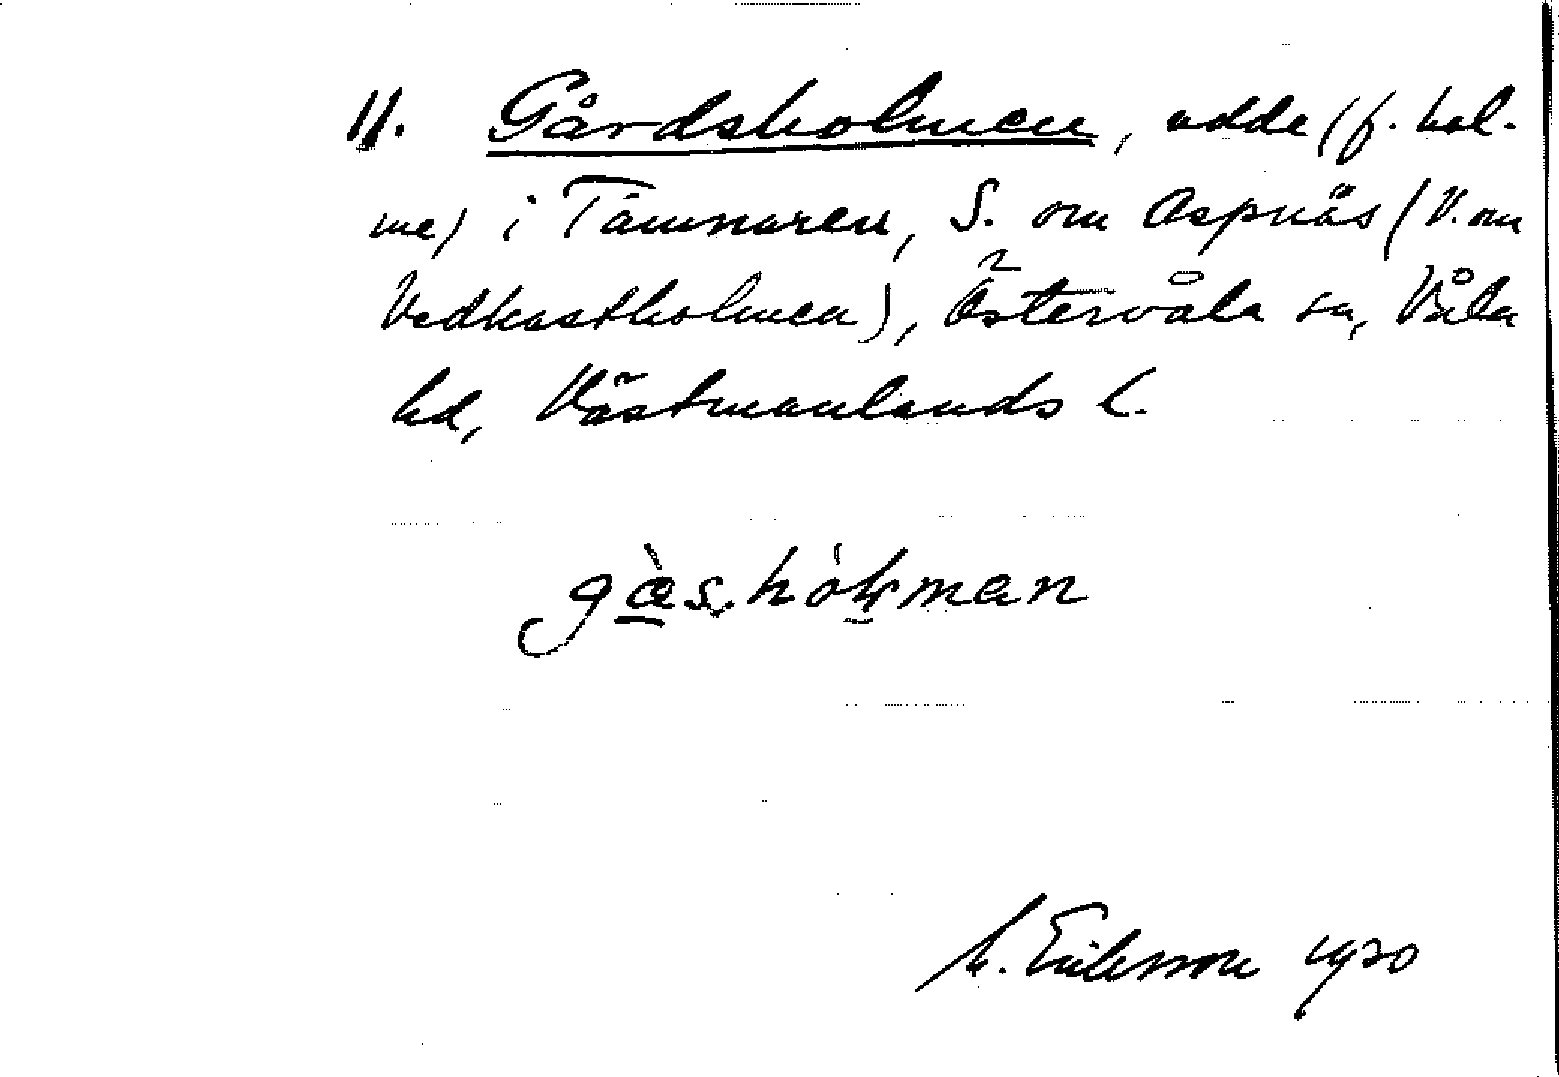 11. Gårdsholmen, udde (f. hol-
me) i Tämnaren, S. om Aspnäs (V. om
Vedkastholmen), Östervåla sn, Våla
hd, Västmanlands l.
gàs, hólman
Eriksson 1920